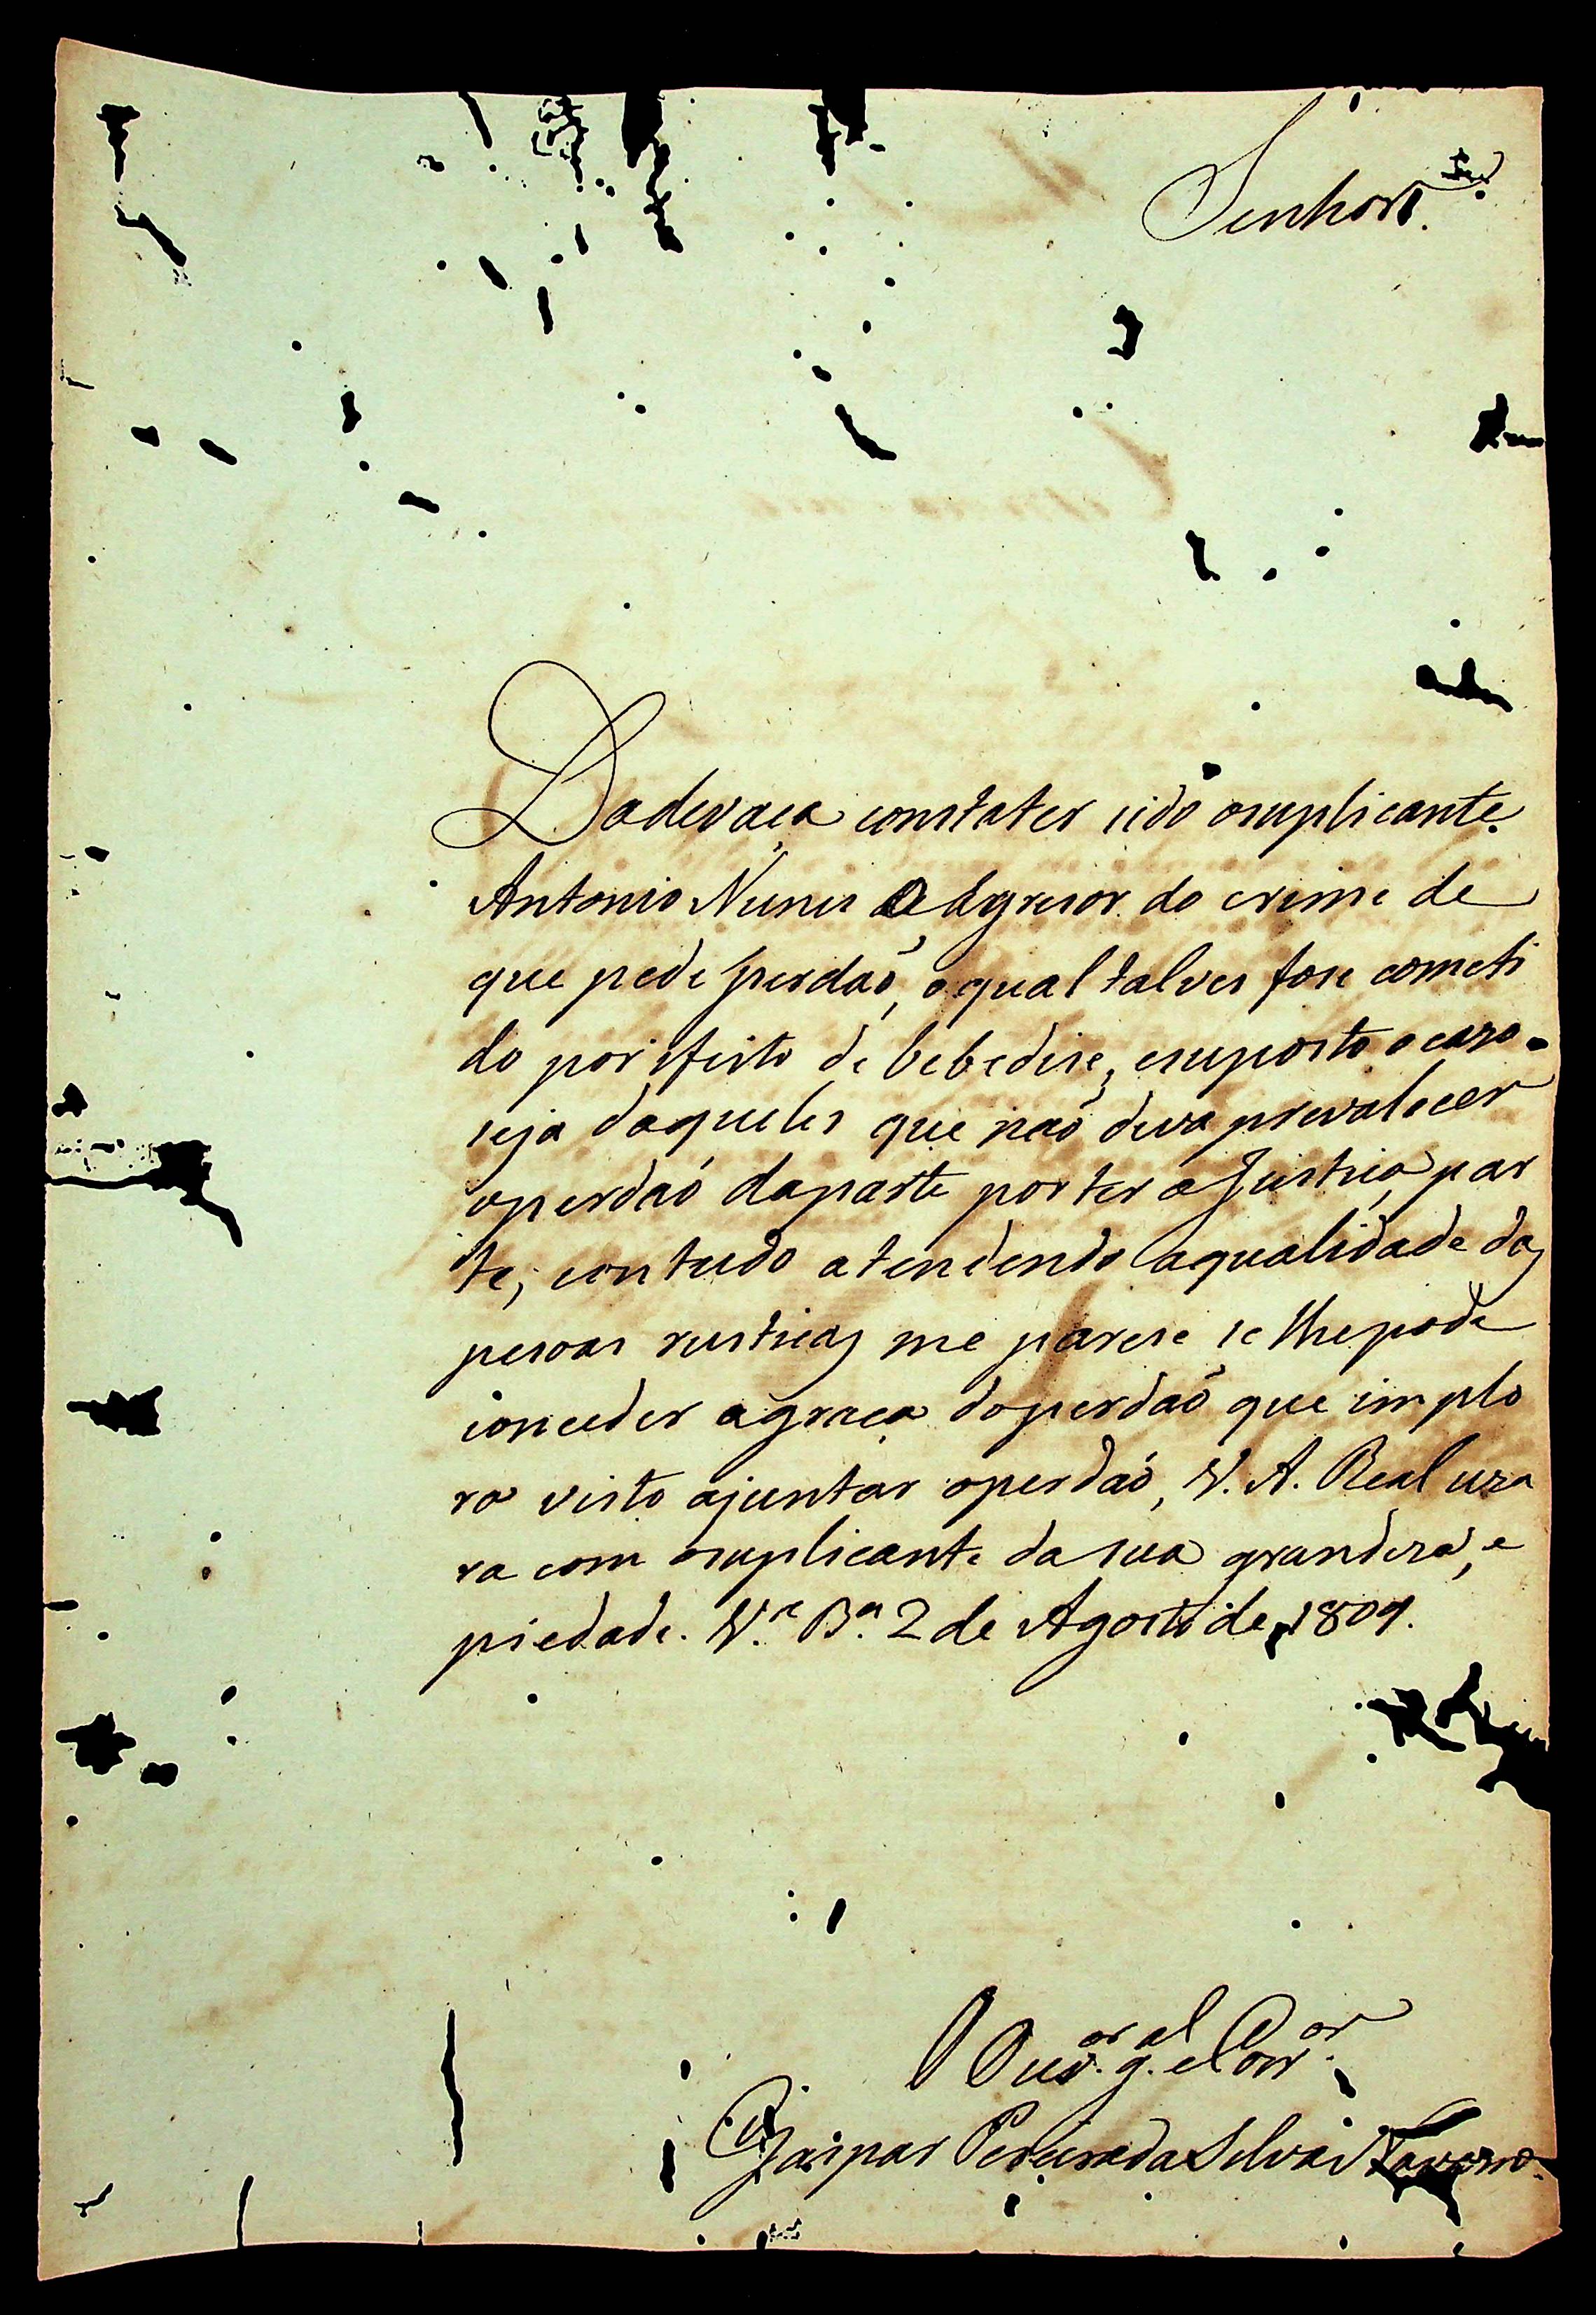 Senhor.
Dadevaça constater sido osuplicante
Antonio Nunes o Agresor do crime de
que pede perdaõ, oqual talves fose cometi
do por efeito de bebedise, esuposto o cazo
seja daqueles que naõ deva prevalecer
operdaõ daparte por ter aJustiça par
te, contudo atendendo aqualidade das
pesoas rusticas me parese se lhepode
conceder agraça doperdaõ que implo
ra visto ajuntar operdaõ, V. A. Real uza
ra com osuplicante da sua grandeza, e
piedade. V.ª B.ª 2 de Agosto de 1809.
O Ouv.or g.al e Corr.or
Gaspar Pereirada Silva